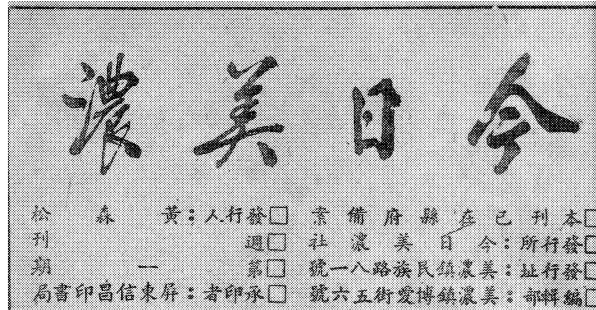 今日美濃
□本刊已在縣府備案
□發行所：今日美濃社
□發行址：美濃鎮民族路八一號
□編輯部：美濃鎮博愛街五六號
□發行人：黃森松
□週刊
□第一期
□承印者：屏東信昌印書局